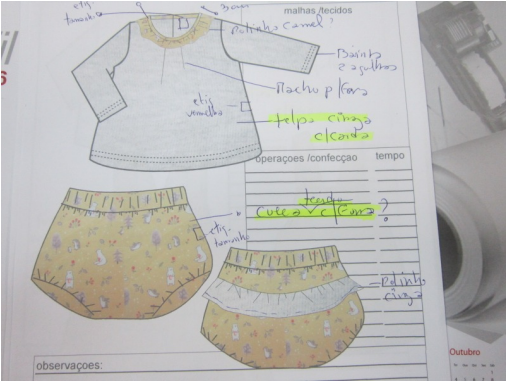 malhas /tecidos
etiq
tamanho
Ratinho camel?
Bainha
2 agulhas
Macho p/fora
etiq
vermelha
felpa cinza
c/carda
operaçoes /confecção tempo
tecido
cueca c/forro ?
etiq-
tamanho
Ratinho
cinza
observaçoes:
Outubro
6